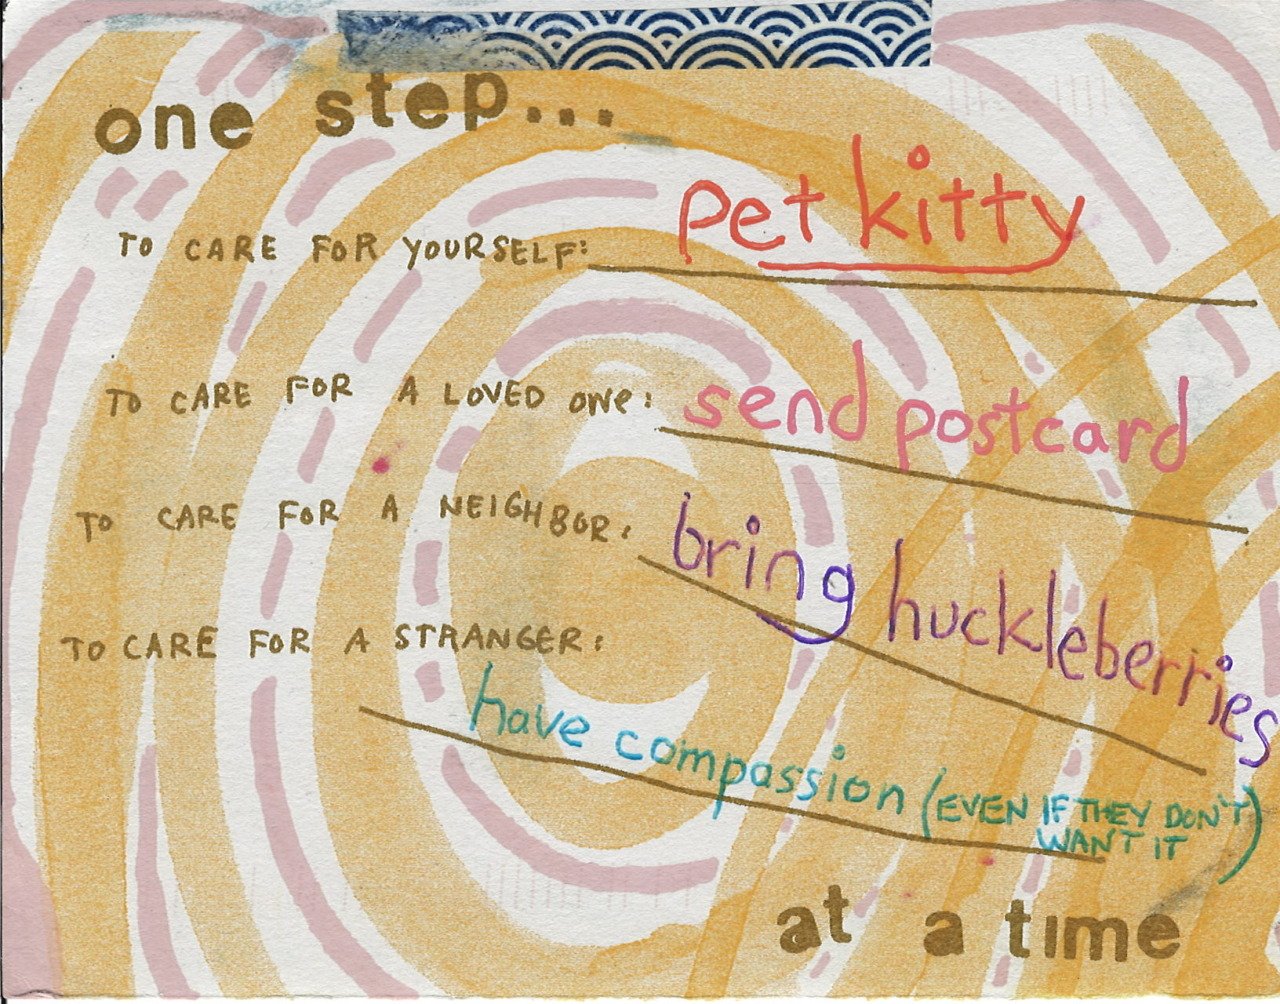 one step...
TO CARE FOR YOURSELF: pet kitty
TO CARE FOR A LOVED ONE: send postcard
TO CARE FOR A NEIGHBOR: bring huckleberries
TO CARE FOR A STRANGER:
have compassion (EVEN IF THEY DON'T
WANT IT)
at a time